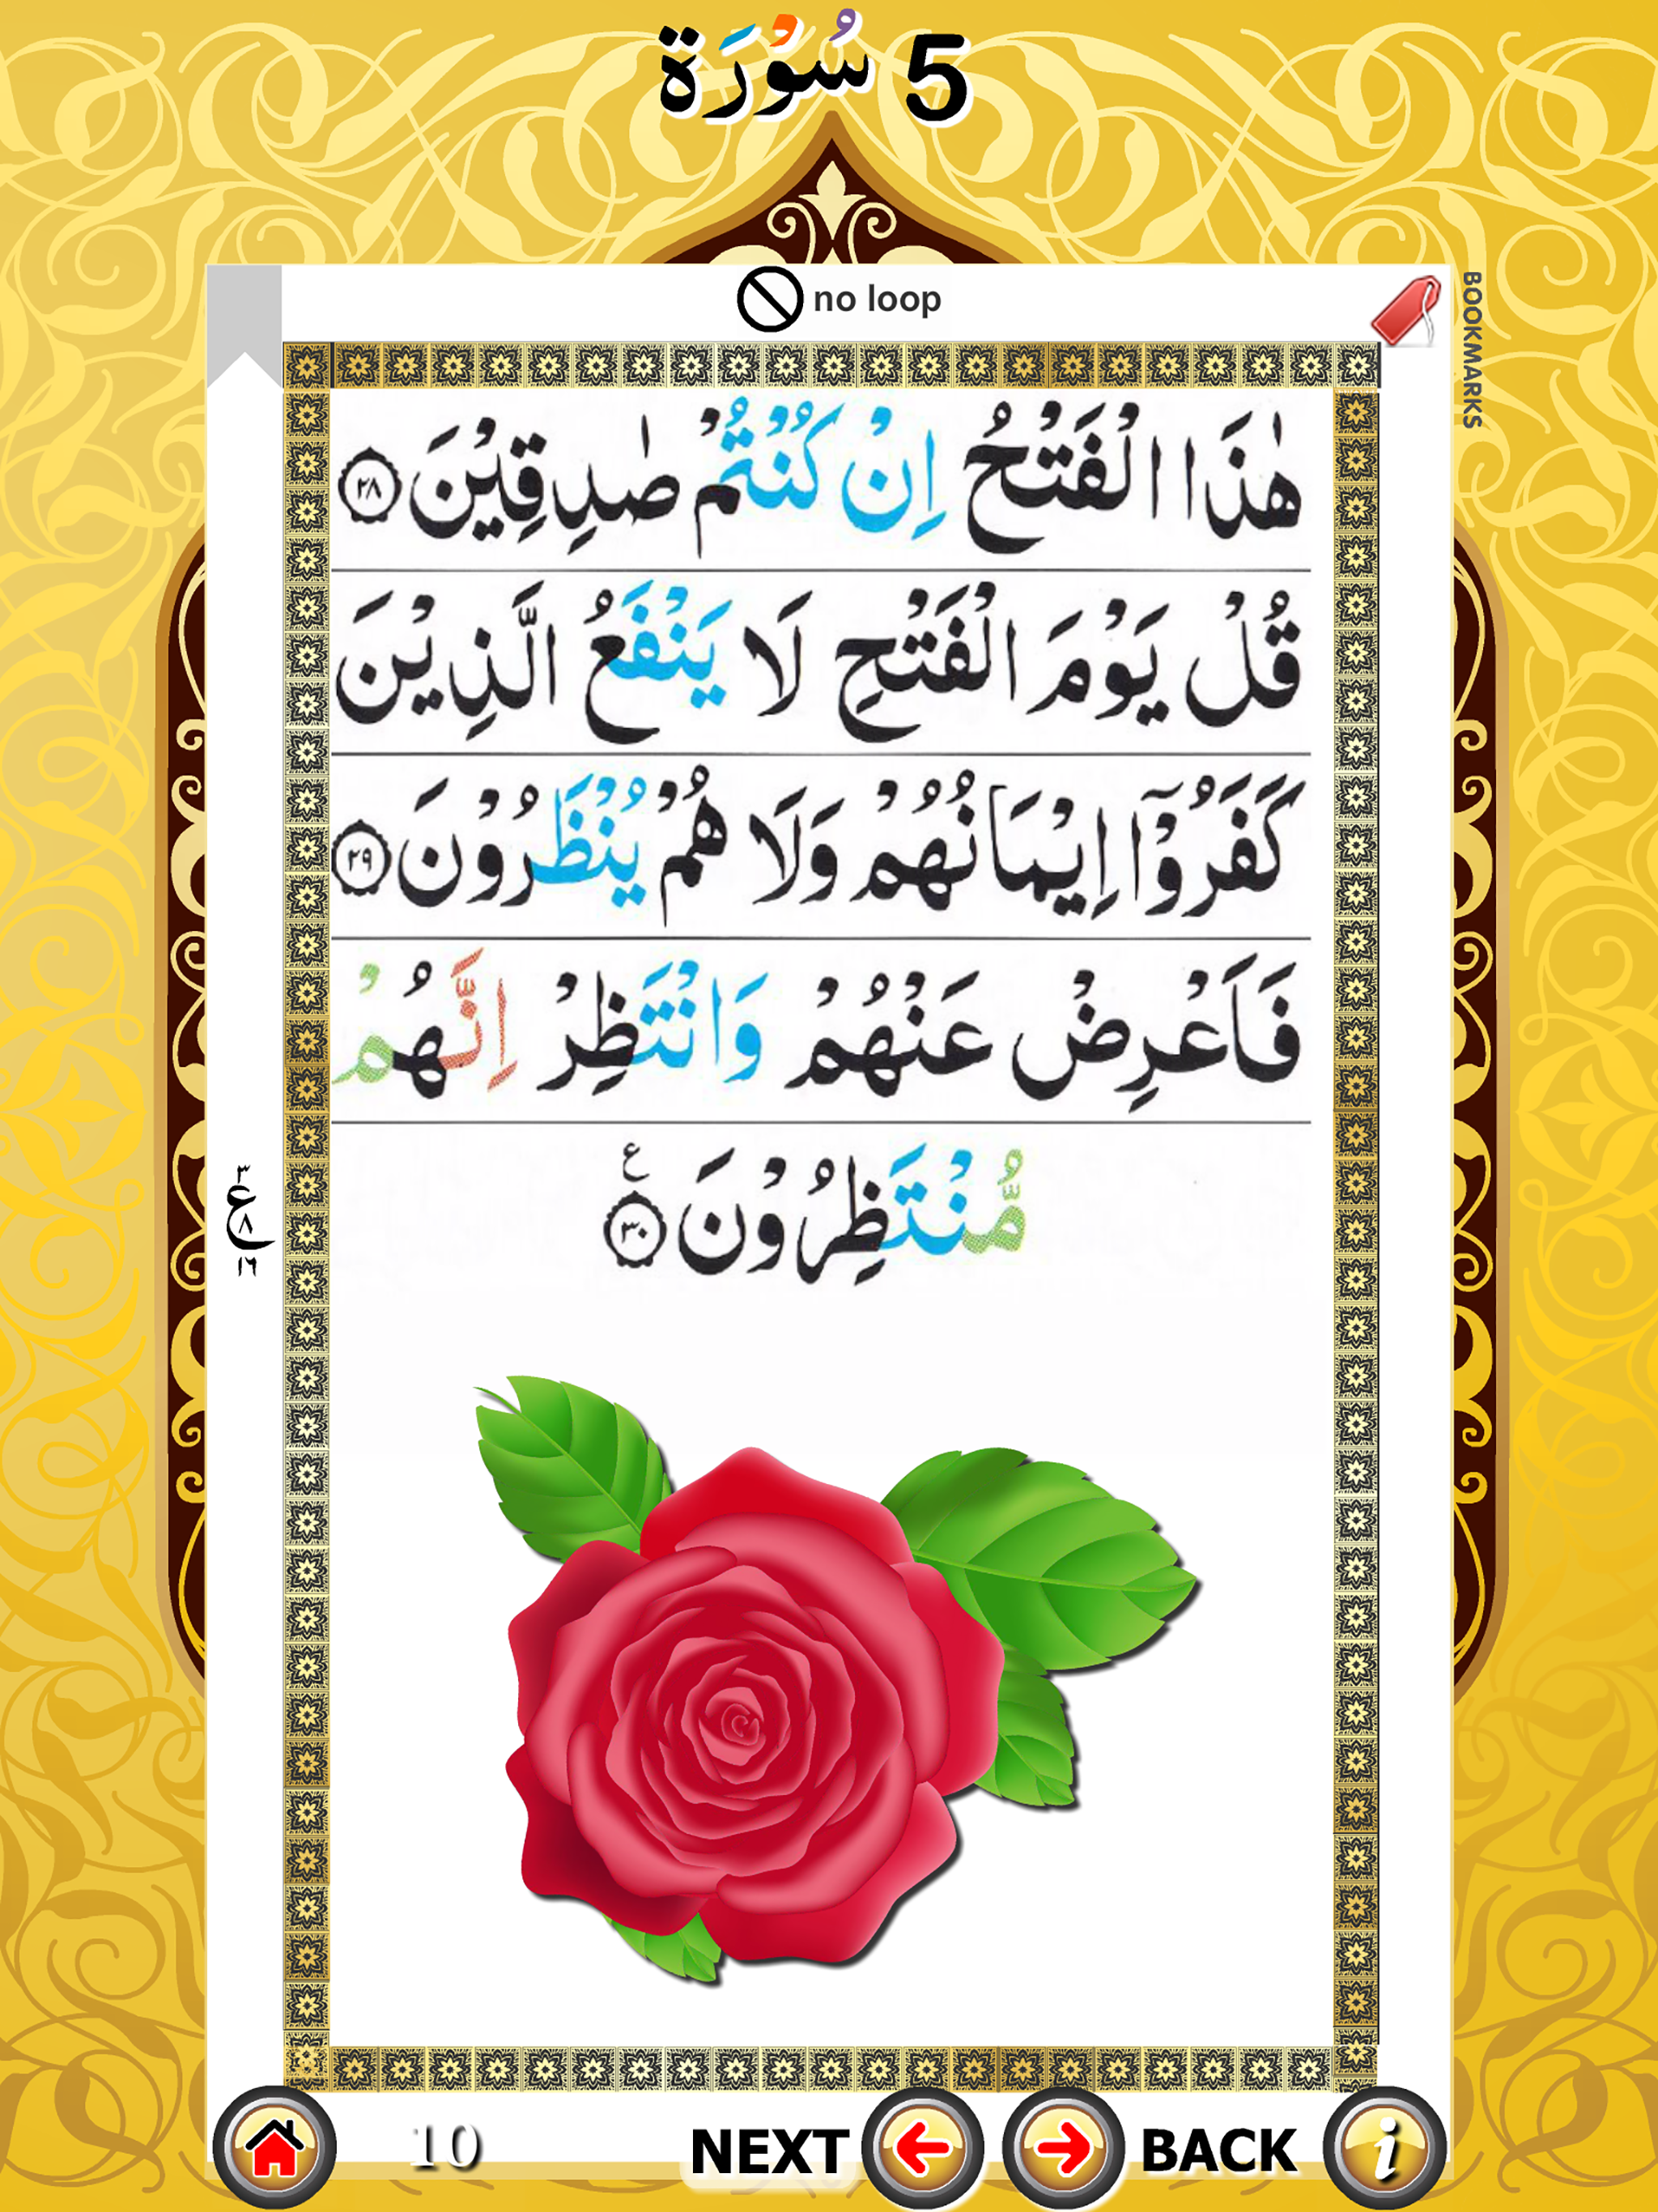 5 سُوْرَة
no loop
BOOKMARKS
هٰذَا الْفَتْحُ اِنْ كُنْتُمْ صٰدِقِيْنَ ۲۸
قُلْ يَوْمَ الْفَتْحِ لَا يَنْفَعُ الَّذِيْنَ
كَفَرُوْۤا اِيْمَانُهُمْ وَلَا هُمْ يُنْظَرُوْنَ ۲۹
فَاَعْرِضْ عَنْهُمْ وَانْتَظِرْ اِنَّهُمْ
مُّنْتَظِرُوْنَ ۳۰ ع
۳
ع ۸
۱۶
10 NEXT BACK i